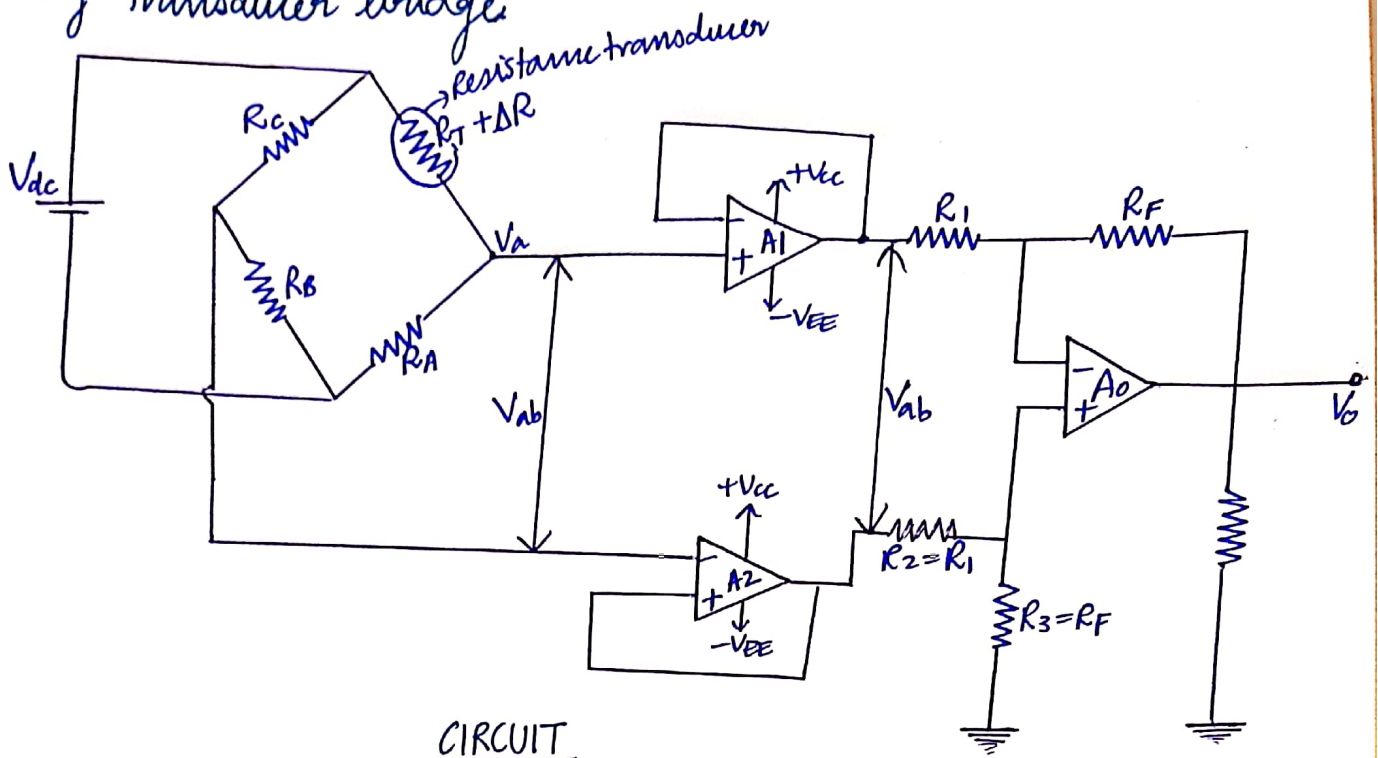 Transducer bridge
Resistance transducer
RT + ΔR
RC
Vdc
Va
RB
RA
Vab
+VCC
-
A1
+
-VEE
R1
RF
Vab
-
A0
+
V0
+VCC
-
A2
+
-VEE
R2=R1
R3=RF
CIRCUIT